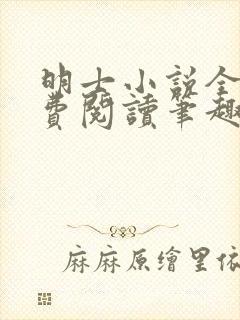 明士小説全
費閱讀筆趣
麻麻原繪里依